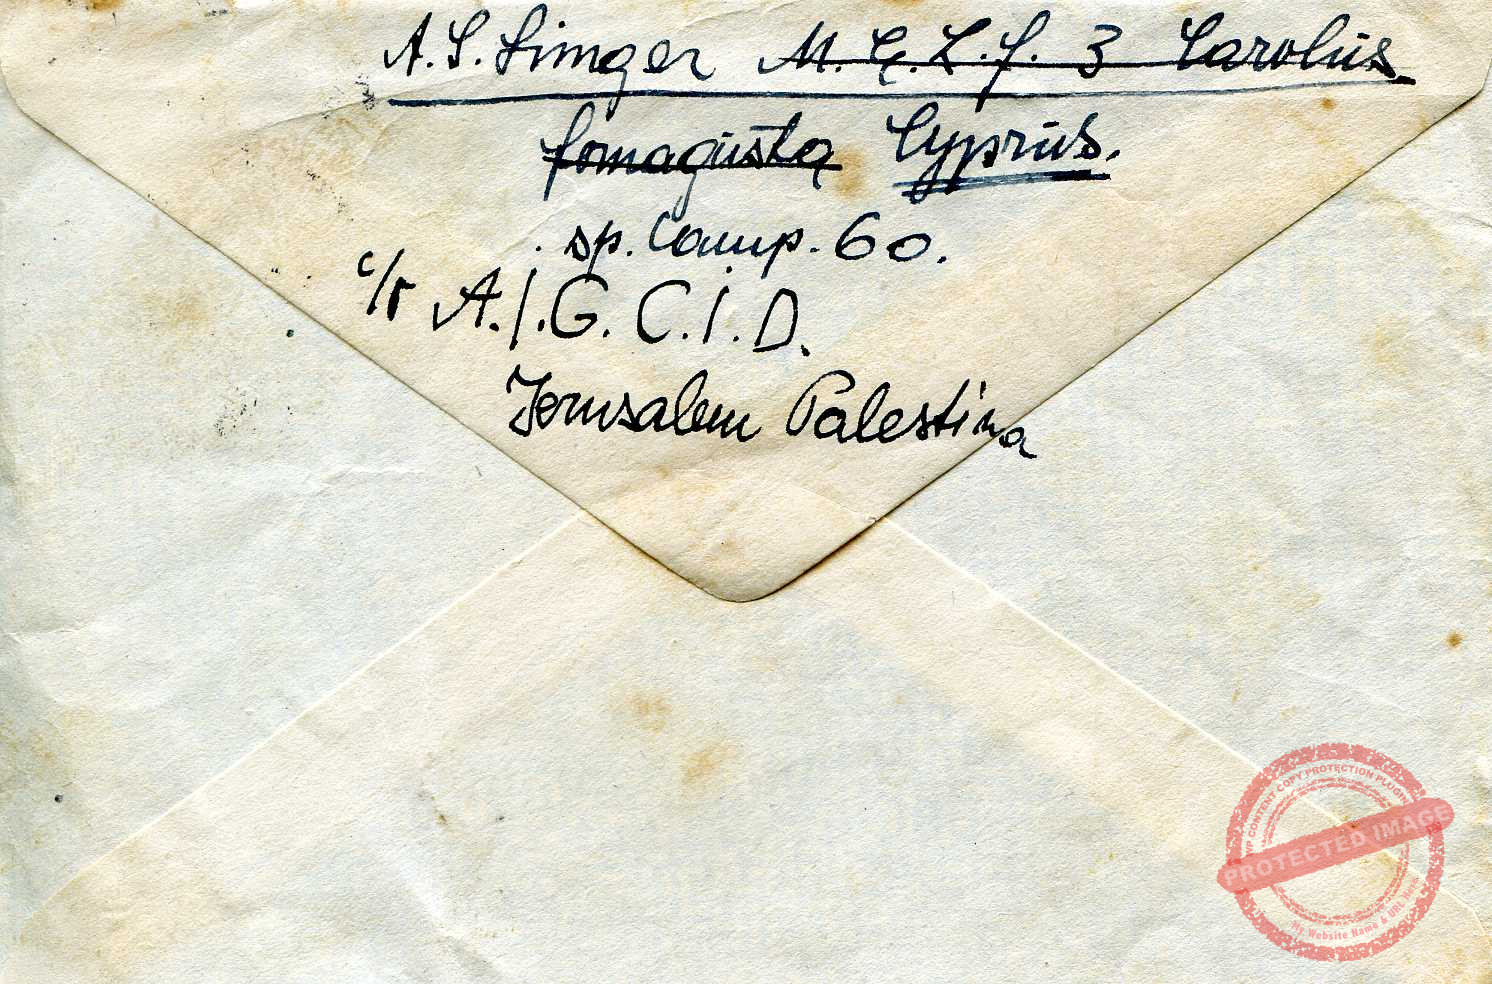 A.S. Singer M.E.L.F. 3 Carolus
famagusta Cyprus.
sp. Camp. 60.
A.I.G. C.I.D.
Jerusalem Palestina
WP CONTENT COPY PROTECTION PLUGIN
PROTECTED IMAGE
My Website Name & URL Here